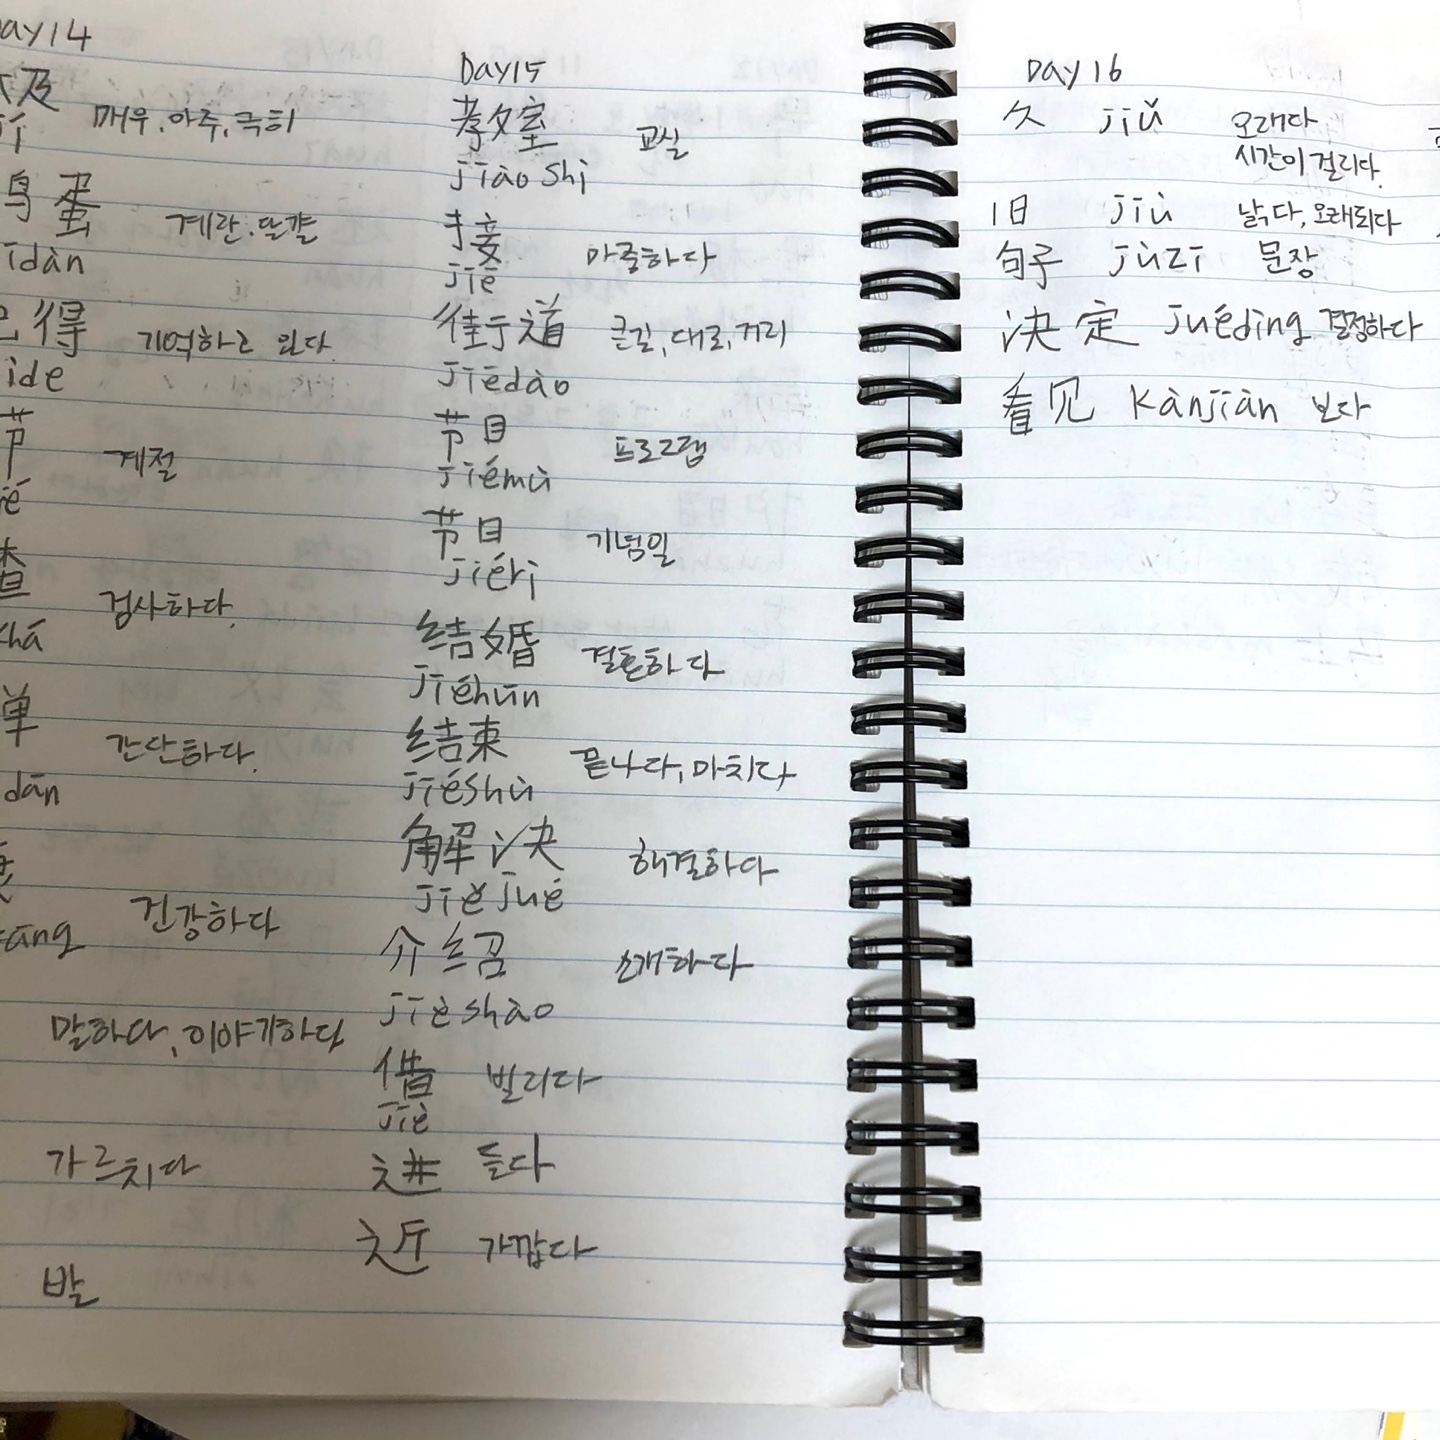 Day14
及 매우, 아주, 극히
jí
鸟蛋 계란. 달걀
jīdàn
记得 기억하고 있다
jìde
节 계절
jié
查 검사하다.
chá
单 간단하다.
dān
건강하다
kāng
말하다, 이야기하다
가르치다
발
Day15
教室 교실
jiàoshì
接 마중하다
jiē
街道 큰길, 대로, 거리
jiēdào
节目 프로그램
jiémù
节日 기념일
jiérì
结婚 결혼하다
jiéhūn
结束 끝나다, 마치다
jiéshù
解决 해결하다
jiějué
介绍 소개하다
jièshào
借 빌리다
jiè
进 들다
近 가깝다
Day16
久 jiǔ 오래다
시간이 걸리다.
旧 jiù 낡다, 오래되다
句子 jùzi 문장
决定 juédìng 결정하다
看见 kànjiàn 보다